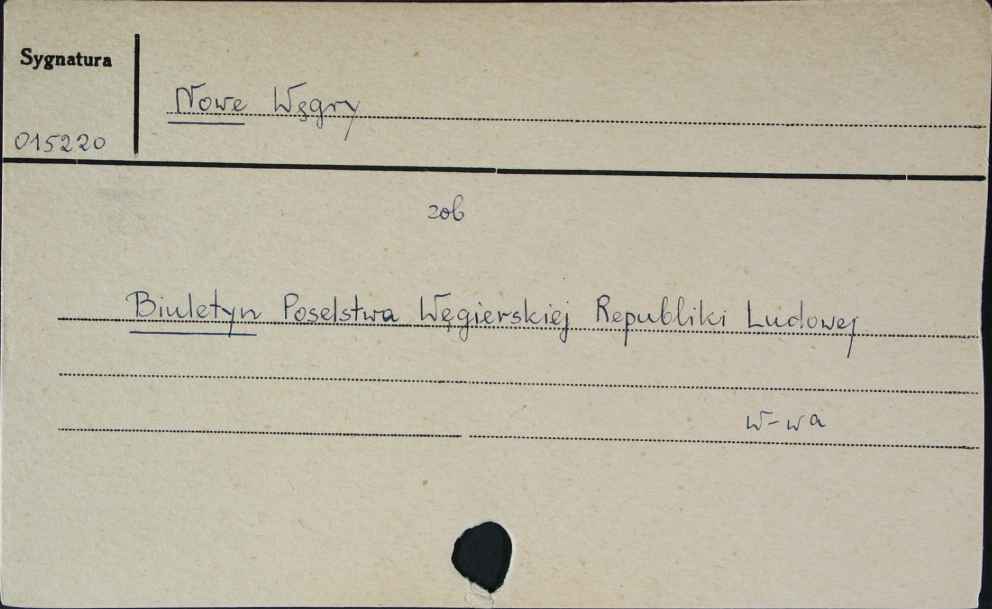 Sygnatura
Nowe Węgry
015220
zob
Biuletyn Poselstwa Węgierskiej Republiki Ludowej
W-wa